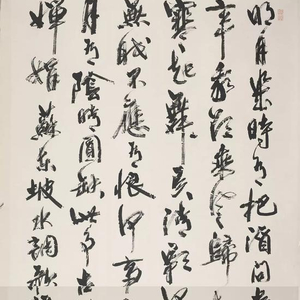 明月幾時有把酒問
年我欲乘風歸
寒起舞弄清影何
無眠不應有恨何事
月有陰晴圓缺此事古
嬋娟蘇東坡水調歌